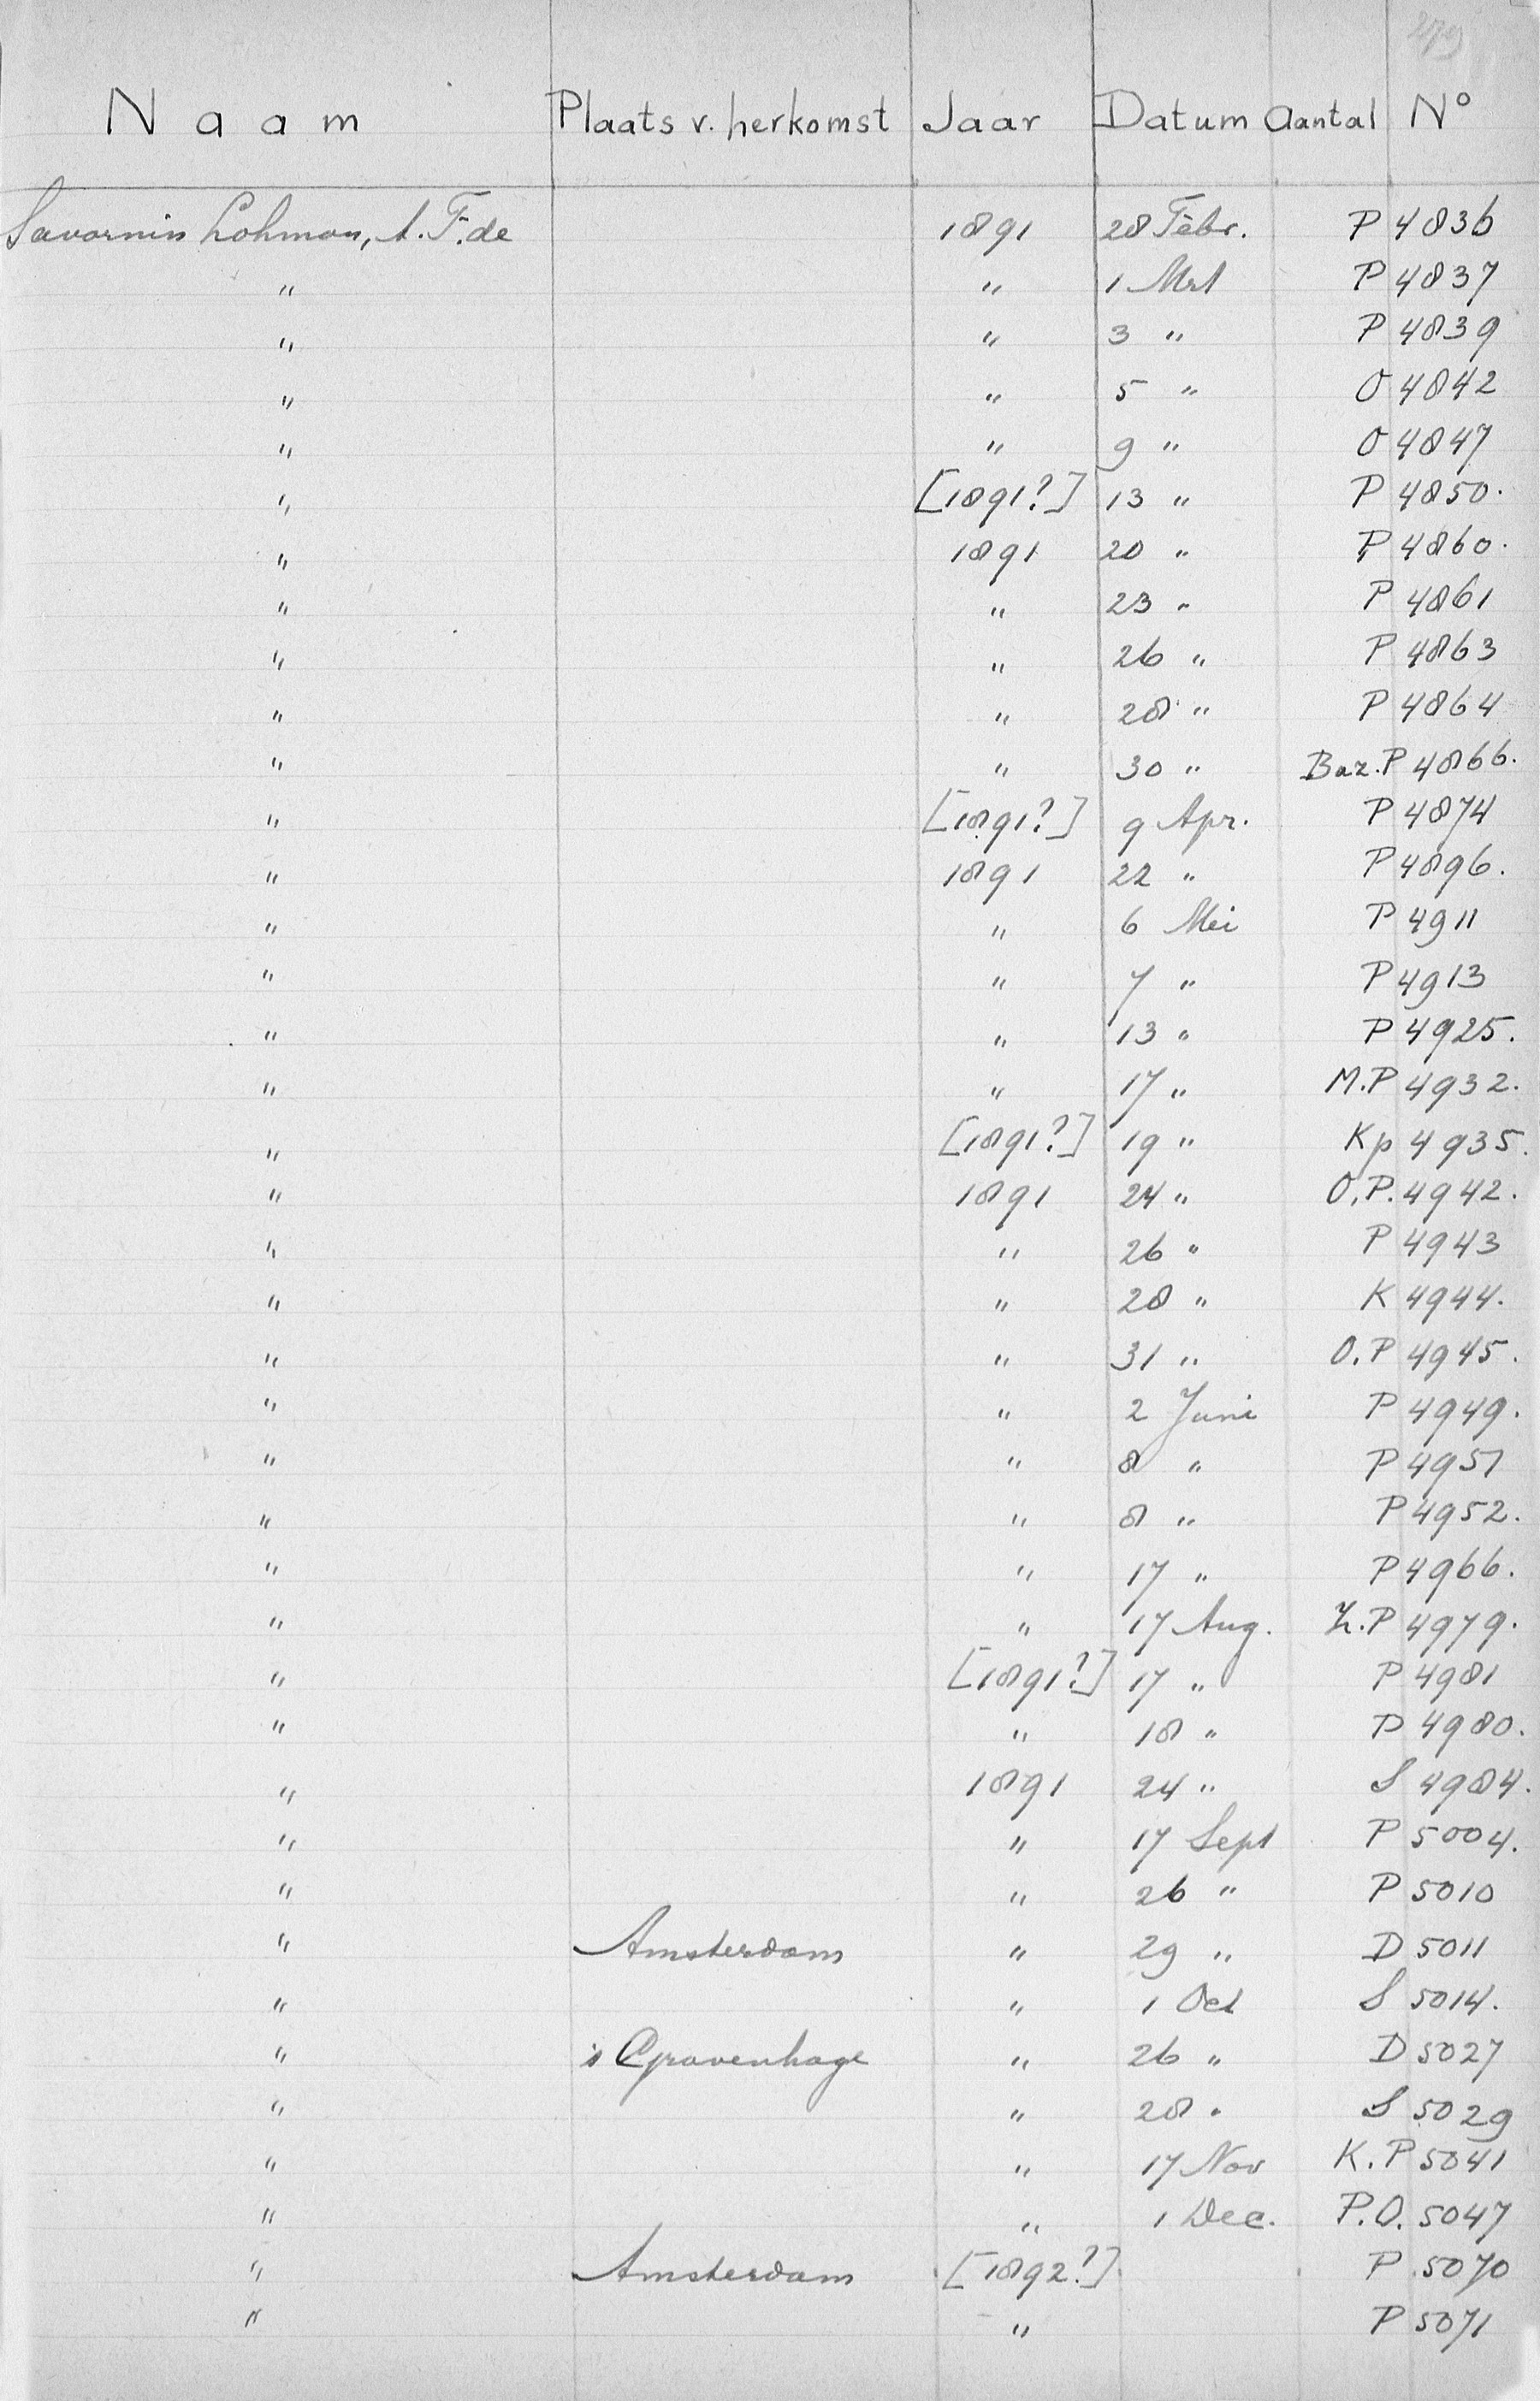 279
Naam Plaats v. herkomst Jaar Datum Aantal No
Savornin Lohman, A. F. de 1891 28 Febr. P 4836
" " 1 Mrt P 4837
" " 3 " P 4839
" " 5 " O 4842
" " 9 " O 4847
" [1891?] 13 " P 4850.
" 1891 20 " P 4860.
" " 23 " P 4861
" " 26 " P 4863
" " 28 " P 4864
" " 30 " Baz. P 4866.
" [1891?] 9 Apr. P 4874
" 1891 22 " P 4896.
" " 6 Mei P 4911
" " 7 " P 4913
" " 13 " P 4925.
" " 17 " M.P 4932.
" [1891?] 19 " Kp 4935.
" 1891 24 " O.P. 4942.
" " 26 " P 4943
" " 28 " K 4944.
" " 31 " O.P 4945.
" " 2 Juni P 4949.
" " 8 " P 4951
" " 8 " P 4952.
" " 17 " P 4966.
" " 17 Aug. Z.P 4979.
" [1891?] 17 " P 4981
" " 18 " P 4980.
" 1891 24 " S 4984.
" " 17 Sept P 5004.
" " 26 " P 5010
" Amsterdam " 29 " D 5011
" " 1 Oct S 5014.
" 's Gravenhage " 26 " D 5027
" " 28 " S 5029
" " 17 Nov K.P 5041
" " 1 Dec. P.O. 5047
" Amsterdam [1892?] P 5070
" " P 5071